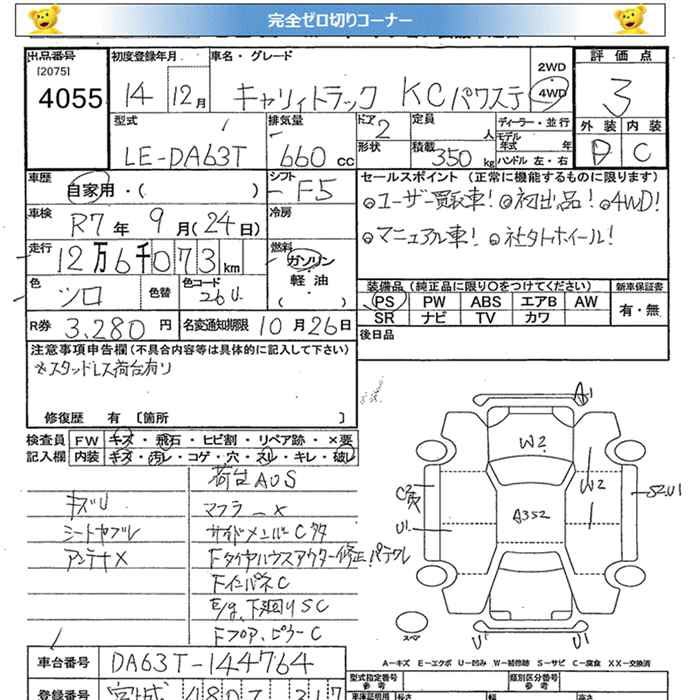 完全ゼロ切りコーナー
出品番号 初度登録年月 車名・グレード 評価点
[2075]
4055 14 12月 キャリィトラック KCパワステ 2WD 4WD 3
型式 排気量 ドア 定員 ディーラー・並行 外装 内装
LE-DA63T 660cc 2 人 モデル年式 年 D C
形状 積載 350kg ハンドル 左・右
車歴 シフト セールスポイント(正常に機能するものに限ります)
自家用・( ) F5 ◎ユーザー買取車!◎初出品!◎4WD!
車検 R7年 9月(24日) 冷房
◎マニュアル車!◎社外ホイール!
走行 12万6千073km 燃料 ガソリン
軽油
( )
色 シロ 色替 色コード 26U
装備品(純正品に限り○をつけてください) 新車保証書
PS PW ABS エアB AW 有・無
SR ナビ TV カワ
R券 3,280円 名変通知期限 10月26日
後日品
注意事項申告欄(不具合内容等は具体的に記入して下さい)
※スタッドレス荷台有り
修復歴 有 [箇所 ]
検査員 FW キズ・飛石・ヒビ割・リペア跡・×要
記入欄 内装 キズ・汚レ・コゲ・穴・スレ・キレ・破レ
荷台AUS
キズU マフラーX
シートヤブレ サイドメンバーCタタ
アンテナX Fタイヤハウスアウター修正パテクレ
FインパネC
E/g、下廻りSC
Fフロア、ピラーC
A1
W2
W2
A352
U1
S2U1
スペア
U1 U1
A-キズ E-エクボ U-凹み W-補修跡 S-サビ C-腐食 XX-交換済
車台番号 DA63T-144764
型式指定番号 類別区分番号
参考 参考
登録番号 宮城 480 317
車庫証明用 長さ 幅 高さ